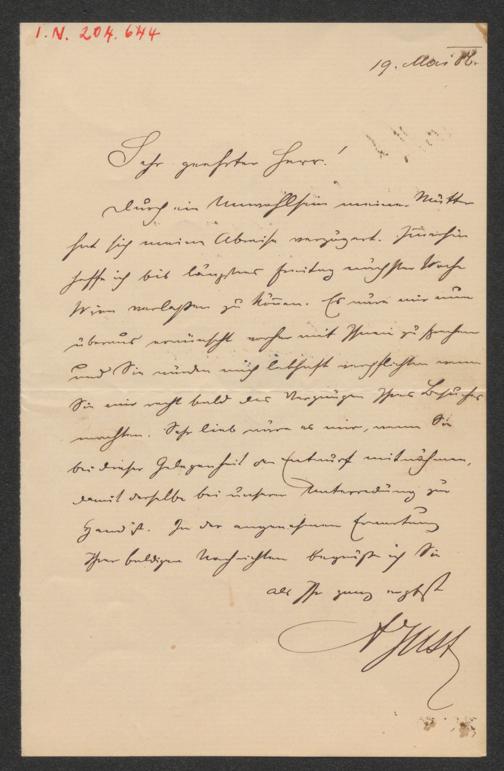 I.N. 204.644
19. Mai 86.
Sehr geehrter Herr!
Durch ein Unwohlsein meiner Mutter
hat sich meine Abreise verzögert. Immerhin
hoffe ich bis längstens Freitag nächster Woche
Wien verlassen zu können. Es wäre mir nun
überaus erwünscht vorher mit Ihnen zu sprechen
und Sie würden mich lebhaft verpflichten wenn
Sie mir recht bald das Vergnügen Ihres Besuches
machten. Sehr lieb wäre es mir, wenn Sie
bei dieser Gelegenheit den Entwurf mitnähmen,
damit derselbe bei unserer Unterredung zur
Hand ist. In der angenehmen Erwartung
Ihrer baldigen Nachrichten begrüße ich Sie
als Ihr ganz ergebst
A Just